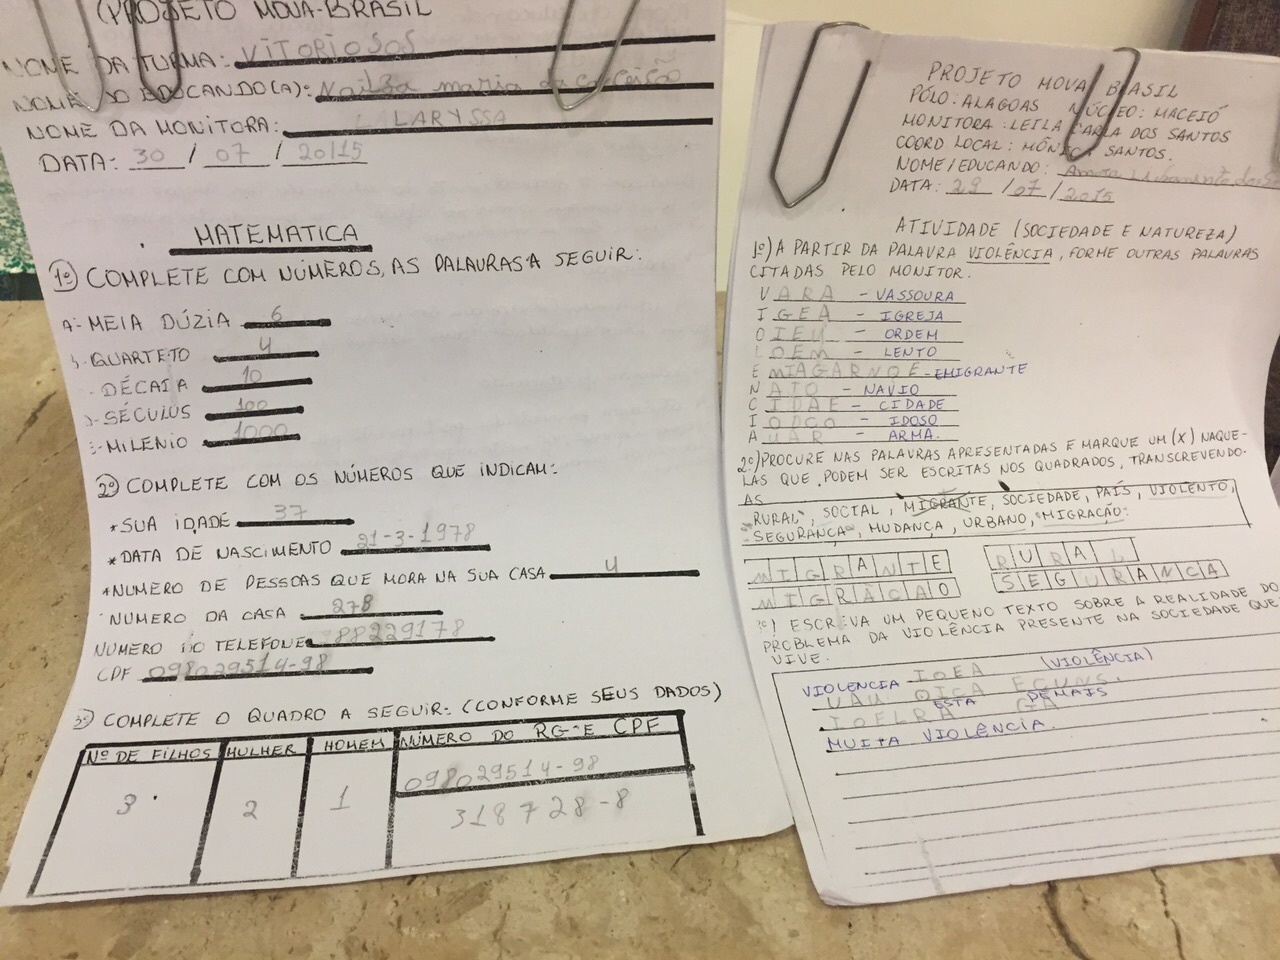 (PROJETO MOVA-BRASIL
NOME DA TURMA: VITORIOSOS
NOME DO EDUCANDO(A): Nailza maria da conceisão
NOME DA MONITORA: LARYSSA
DATA: 30 / 07 / 20115
MATEMATICA
1º) COMPLETE COM NÚMEROS, AS PALAVRAS A SEGUIR:
A- MEIA DÚZIA 6
QUARTETO 4
DÉCADA 10
SÉCULOS 100
MILENIO 1000
2º) COMPLETE COM OS NÚMEROS QUE INDICAM:
*SUA IDADE 37
*DATA DE NASCIMENTO 21-3-1978
*NUMERO DE PESSOAS QUE MORA NA SUA CASA 4
NUMERO DA CASA 278
NUMERO DO TELEFONE 88229178
CPF 098029514-98
3º) COMPLETE O QUADRO A SEGUIR: (CONFORME SEUS DADOS)
Nº DE FILHOS MULHER HOMEM NÚMERO DO RG E CPF
098029514-98
3 2 1 318728-8
PROJETO MOVA BRASIL
PÓLO: ALAGOAS NÚCLEO: MACEIÓ
MONITORA: LEILA CARLA DOS SANTOS
COORD LOCAL: MÔNICA SANTOS.
NOME/EDUCANDO:
DATA: 29 /07 /2015
ATIVIDADE (SOCIEDADE E NATUREZA)
1º) A PARTIR DA PALAVRA VIOLÊNCIA, FORME OUTRAS PALAVRAS
CITADAS PELO MONITOR.
VARA - VASSOURA
IGEA - IGREJA
OIEU - ORDEM
LOEM - LENTO
EMIAGARNOE - IMIGRANTE
NATO - NAVIO
CIDAE - CIDADE
IODCO - IDOSO
AUAR - ARMA.
2º) PROCURE NAS PALAVRAS APRESENTADAS E MARQUE UM (X) NAQUE-
LAS QUE PODEM SER ESCRITAS NOS QUADRADOS, TRANSCREVENDO-
AS
"RURAL", SOCIAL, MIGRANTE, SOCIEDADE, PAÍS, VIOLENTO,
"SEGURANÇA", MUDANÇA, URBANO, "MIGRAÇÃO:
MIGRANTE RURAL
MIGRAÇAO SEGURANCA
3º) ESCREVA UM PEQUENO TEXTO SOBRE A REALIDADE DO
PROBLEMA DA VIOLÊNCIA PRESENTE NA SOCIEDADE QUE
VIVE.
VIOLENCIA IOEA (VIOLÊNCIA)
UAU OICA EGUNS.
ESTA DEMAIS
IOELRA GA
MUITA VIOLÊNCIA.